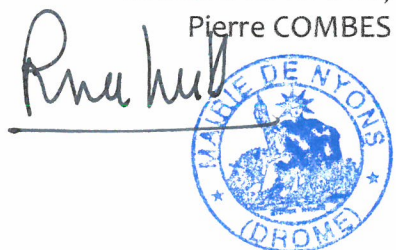 Pierre COMBES
MAIRIE DE NYONS
(DROME)